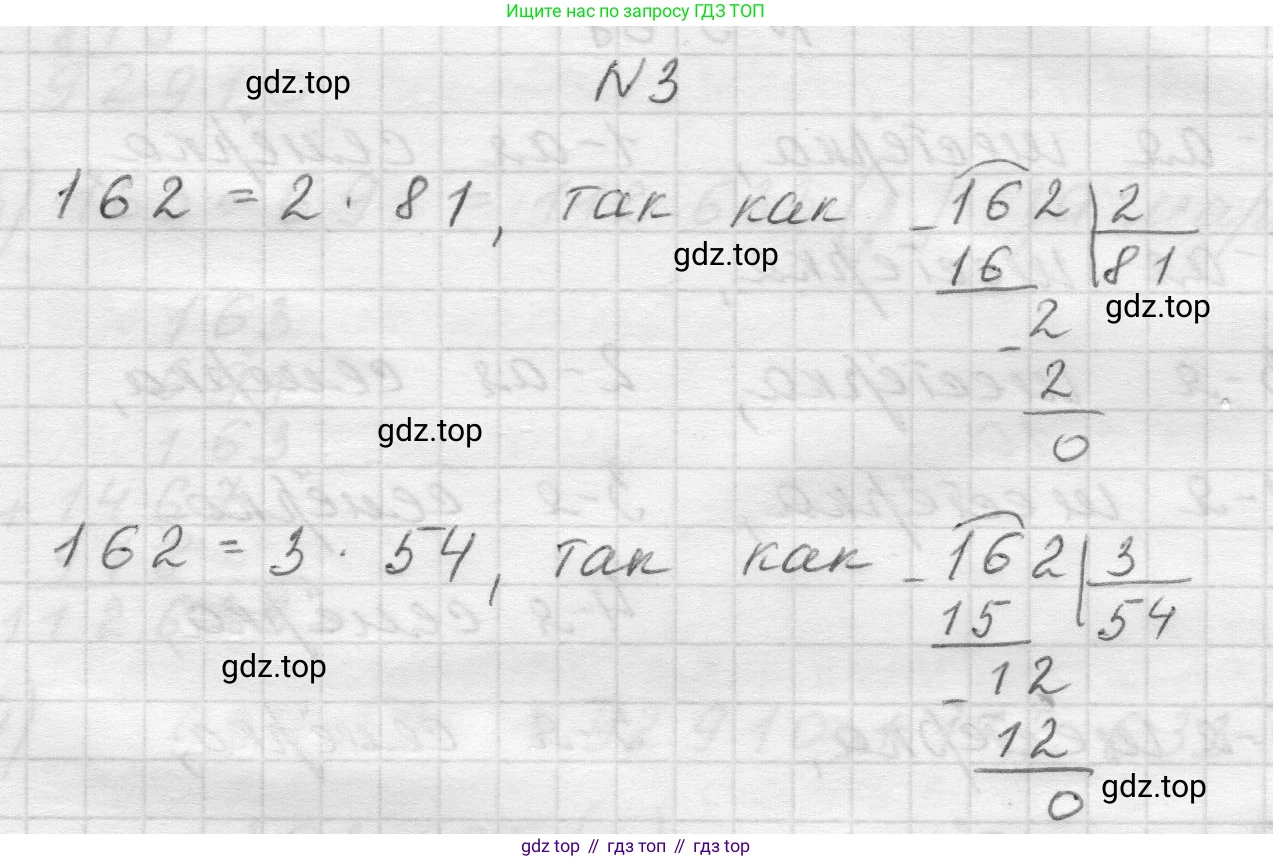 Ищите нас по запросу ГДЗ ТОП
gdz.top
N 3
162 = 2 · 81, так как
162 | 2
- 16 | 81
gdz.top
gdz.top
- 2
2
0
gdz.top
162 = 3 · 54, так как
162 | 3
- 15 | 54
gdz.top
- 12
12
0
gdz.top
gdz top // гдз топ // gdz top